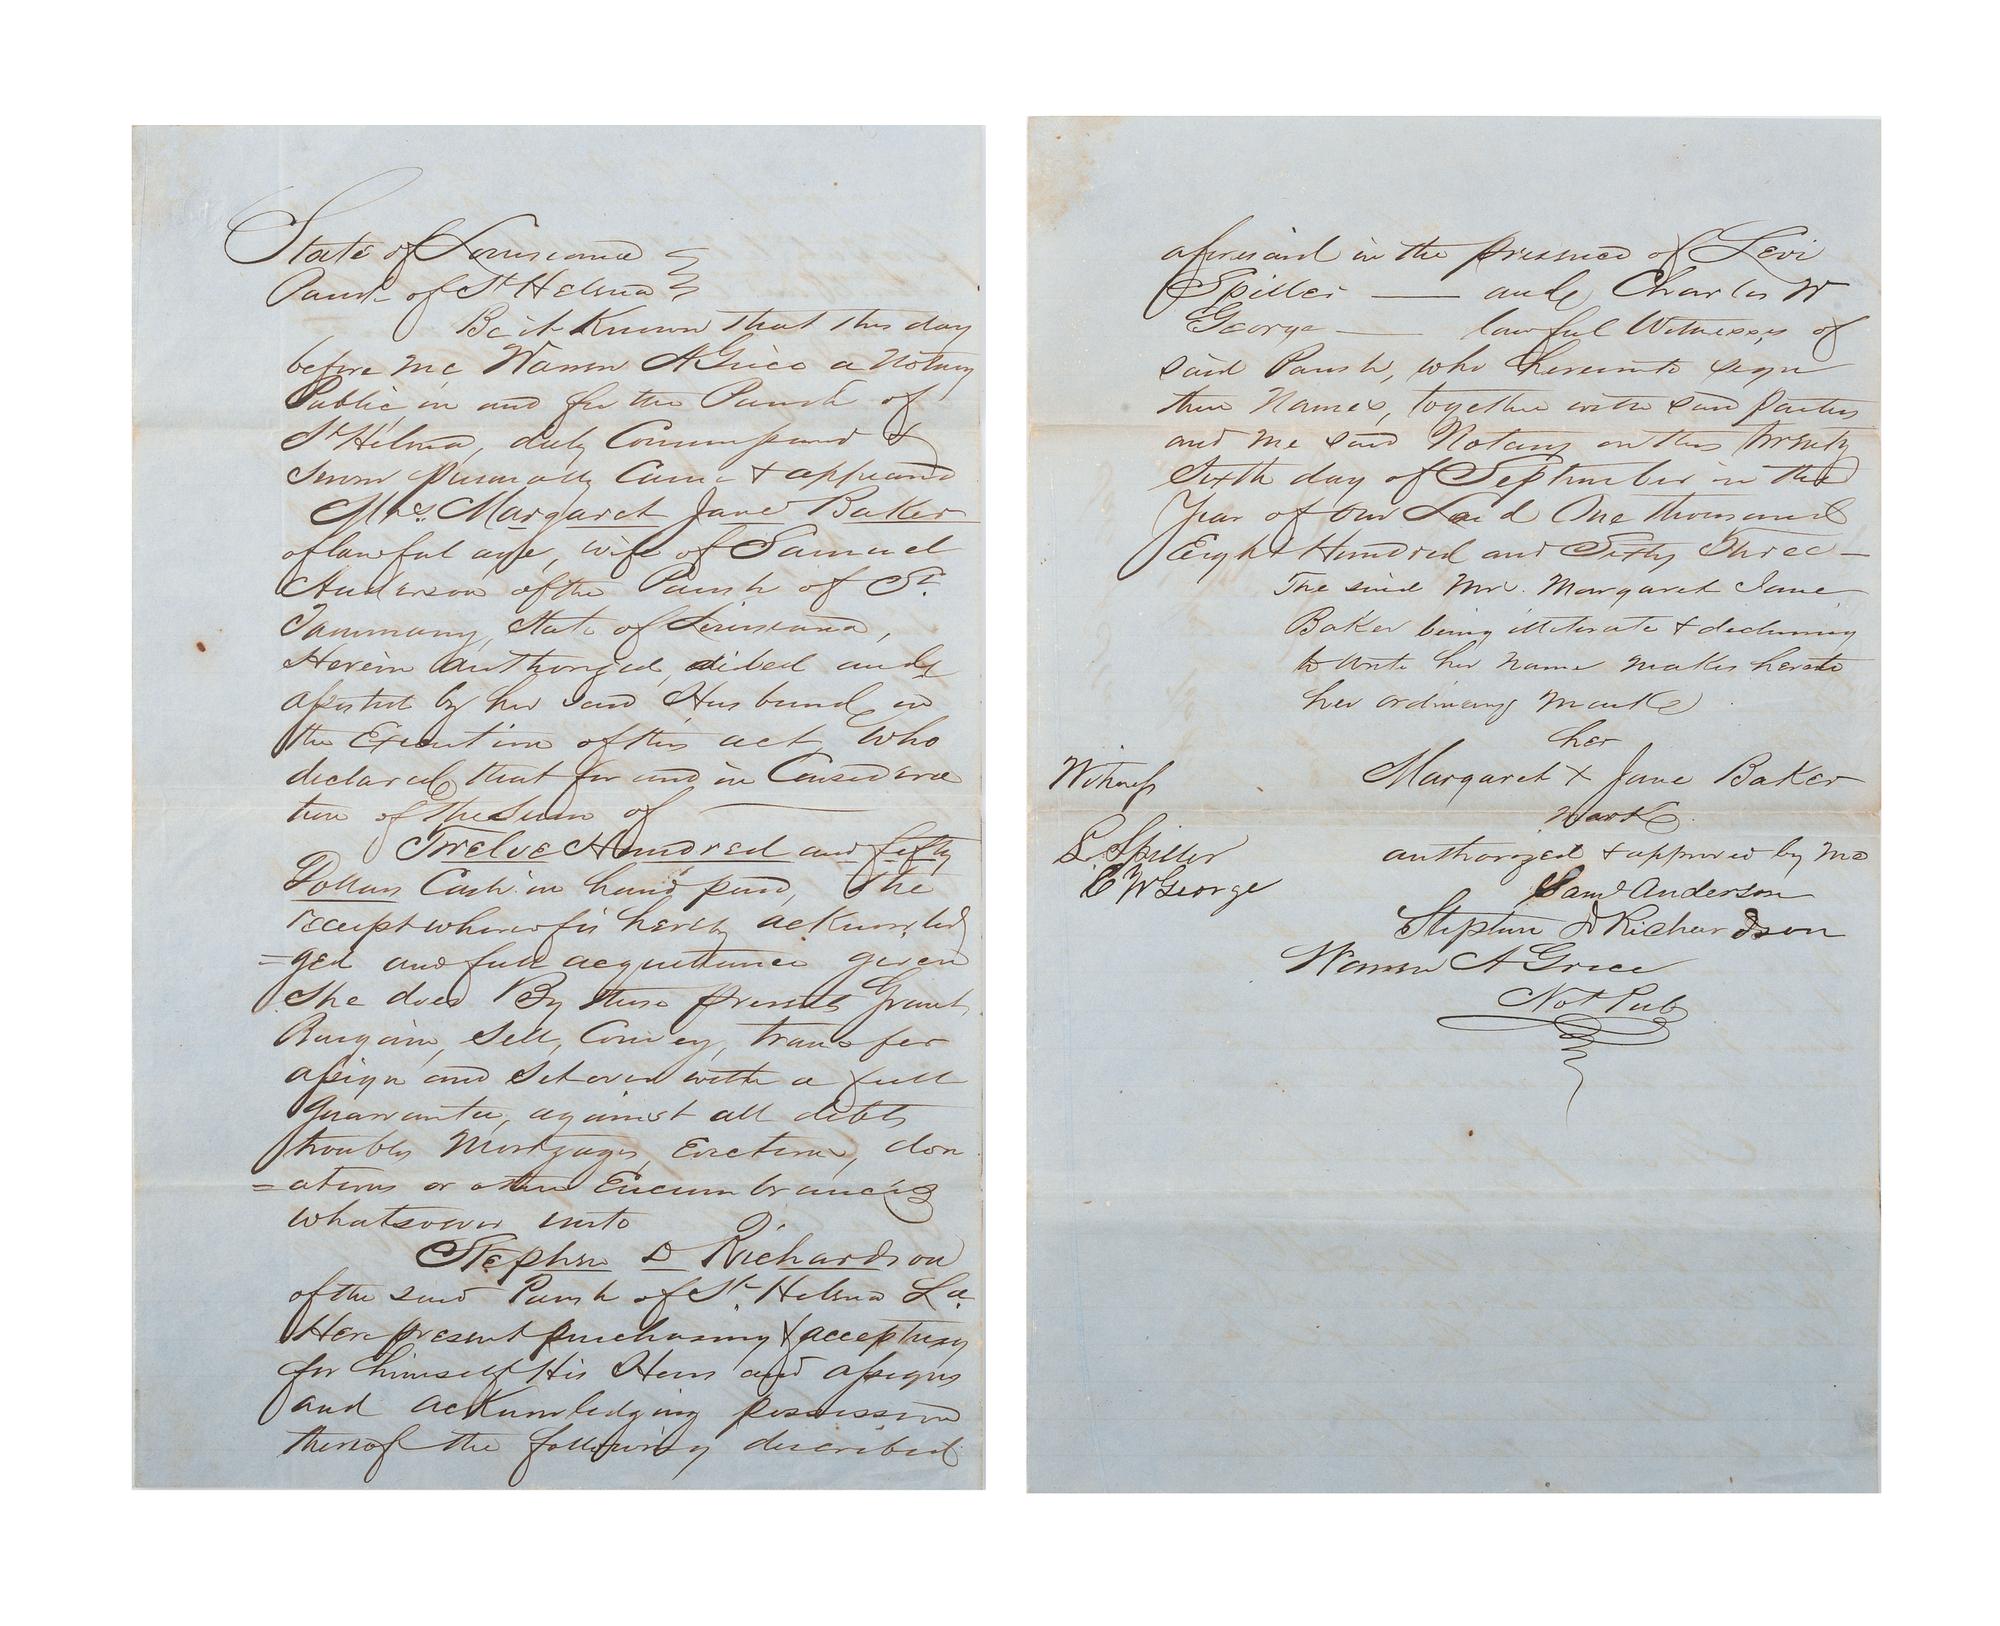 State of Louisiana
Parish of St Helena
Be it Known that this day
before me Warren A Grice a Notary
Public in and for the Parish of
St Helena, duly Commissioned &
sworn personally Came & appeared
Mrs. Margaret Jane Baker
of lawful age, wife of Samuel
Anderson of the Parish of St.
Tammany, State of Louisiana,
Herein authorized, aided and
assisted by her said Husband in
the Execution of this act, Who
declared that for and in Considera
tion of the sum of
Twelve Hundred and fifty
Dollars Cash in hand paid, the
receipt whereof is hereby acknowled
=ged and full acquittance given
She does By these presents Grant
Bargain, Sell, Convey, transfer
assign and set over with a full
Guarantee, against all debts
troubles Mortgages, Evictions, don
=ations or other Encumbrances
whatsoever unto
Stephen D Richardson
of the said Parish of St. Helena La.
Here present purchasing & accepting
for himself His Heirs and assigns
and acknowledging possession
thereof the following described
aforesaid in the presence of Levi
Spiller — and Charles W
George — lawful Witnesses of
said Parish, who hereunto sign
their Names, together with said parties
and me said Notary on this twenty
Sixth day of September in the
Year of Our Lord One thousand
Eight Hundred and Sixty Three —
The said Mrs. Margaret Jane
Baker being illiterate & declining
to write her name makes hereto
her ordinary mark
her
Witness Margaret X Jane Baker
mark
L. Spiller authorized & approved by me
C W George Saml Anderson
Stephen D Richardson
Warren A Grice
Not Pub